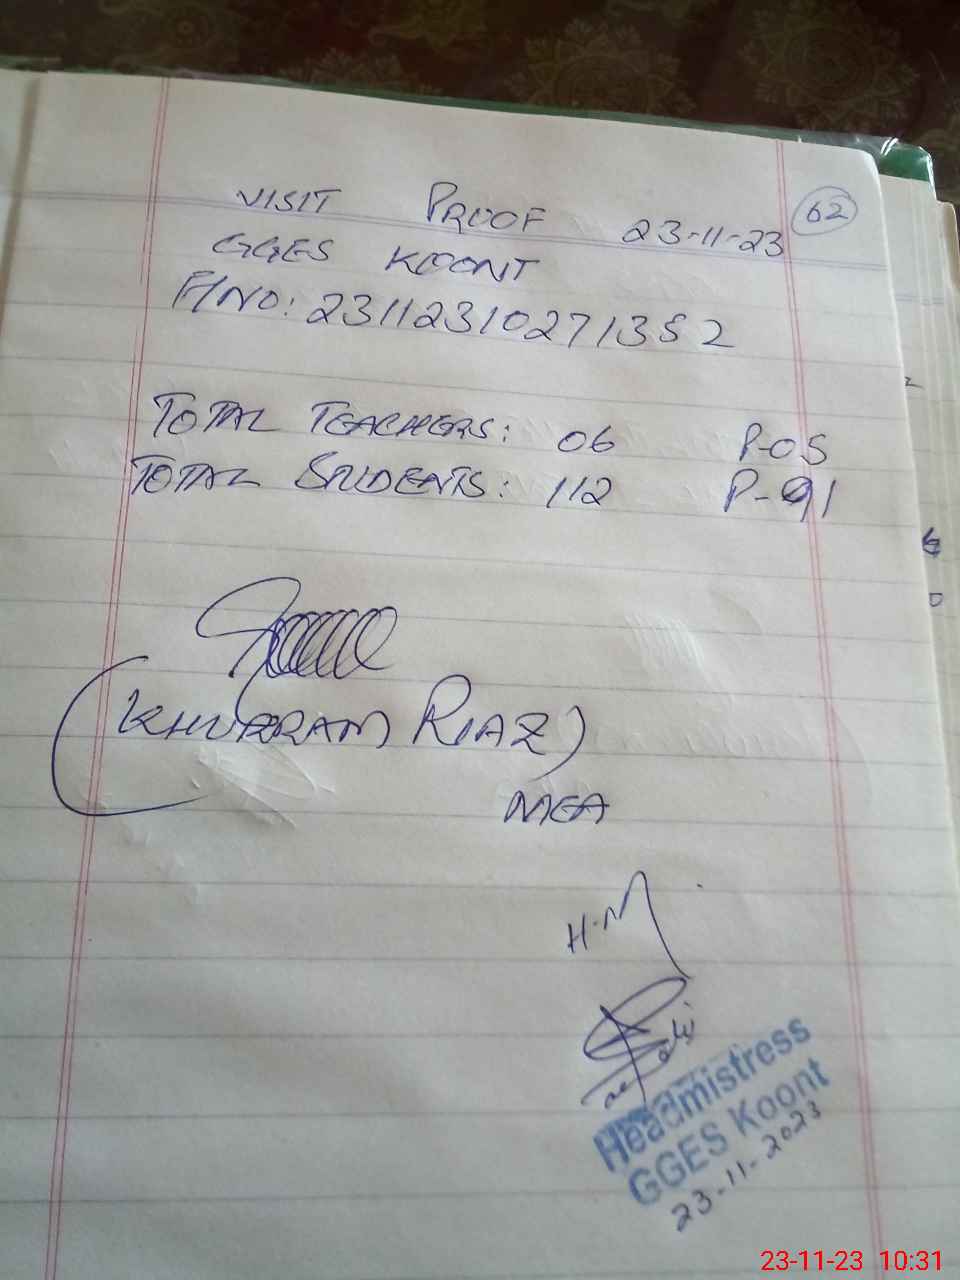 62
VISIT PROOF 23-11-23
GGES KOONT
F/NO: 231123102713S2
TOTAL TEACHERS: 06 P-05
TOTAL STUDENTS: 112 P-91
(KHURRAM RIAZ)
MEA
H.M
Headmistress
GGES Koont
23-11-2023
23-11-23 10:31